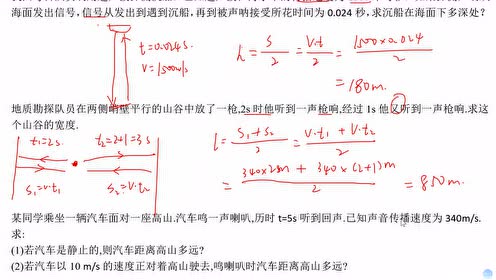 海面发出信号,信号从发出到遇到沉船,再到被声呐接受所花时间为 0.024 秒,求沉船在海面下多深处?
t=0.024s
V=1500m/s
h = S/2 = V·t/2 = 1500×0.024/2
=180m.
地质勘探队员在两侧峭壁平行的山谷中放了一枪,2s 时他听到一声枪响,经过 1s 他又听到一声枪响.求这
个山谷的宽度.
t₁=2s t₂=2+1=3s
S₁=V·t₁ S₂=V·t₂
l = (S₁+S₂)/2 = (V·t₁ + V·t₂)/2
= (340×2m + 340×(2+1)m)/2 = 850m.
某同学乘坐一辆汽车面对一座高山.汽车鸣一声喇叭,历时 t=5s 听到回声.已知声音传播速度为 340m/s.
求:
(1)若汽车是静止的,则汽车距离高山多远?
(2)若汽车以 10 m/s 的速度正对着高山驶去,鸣喇叭时汽车距离高山多远?